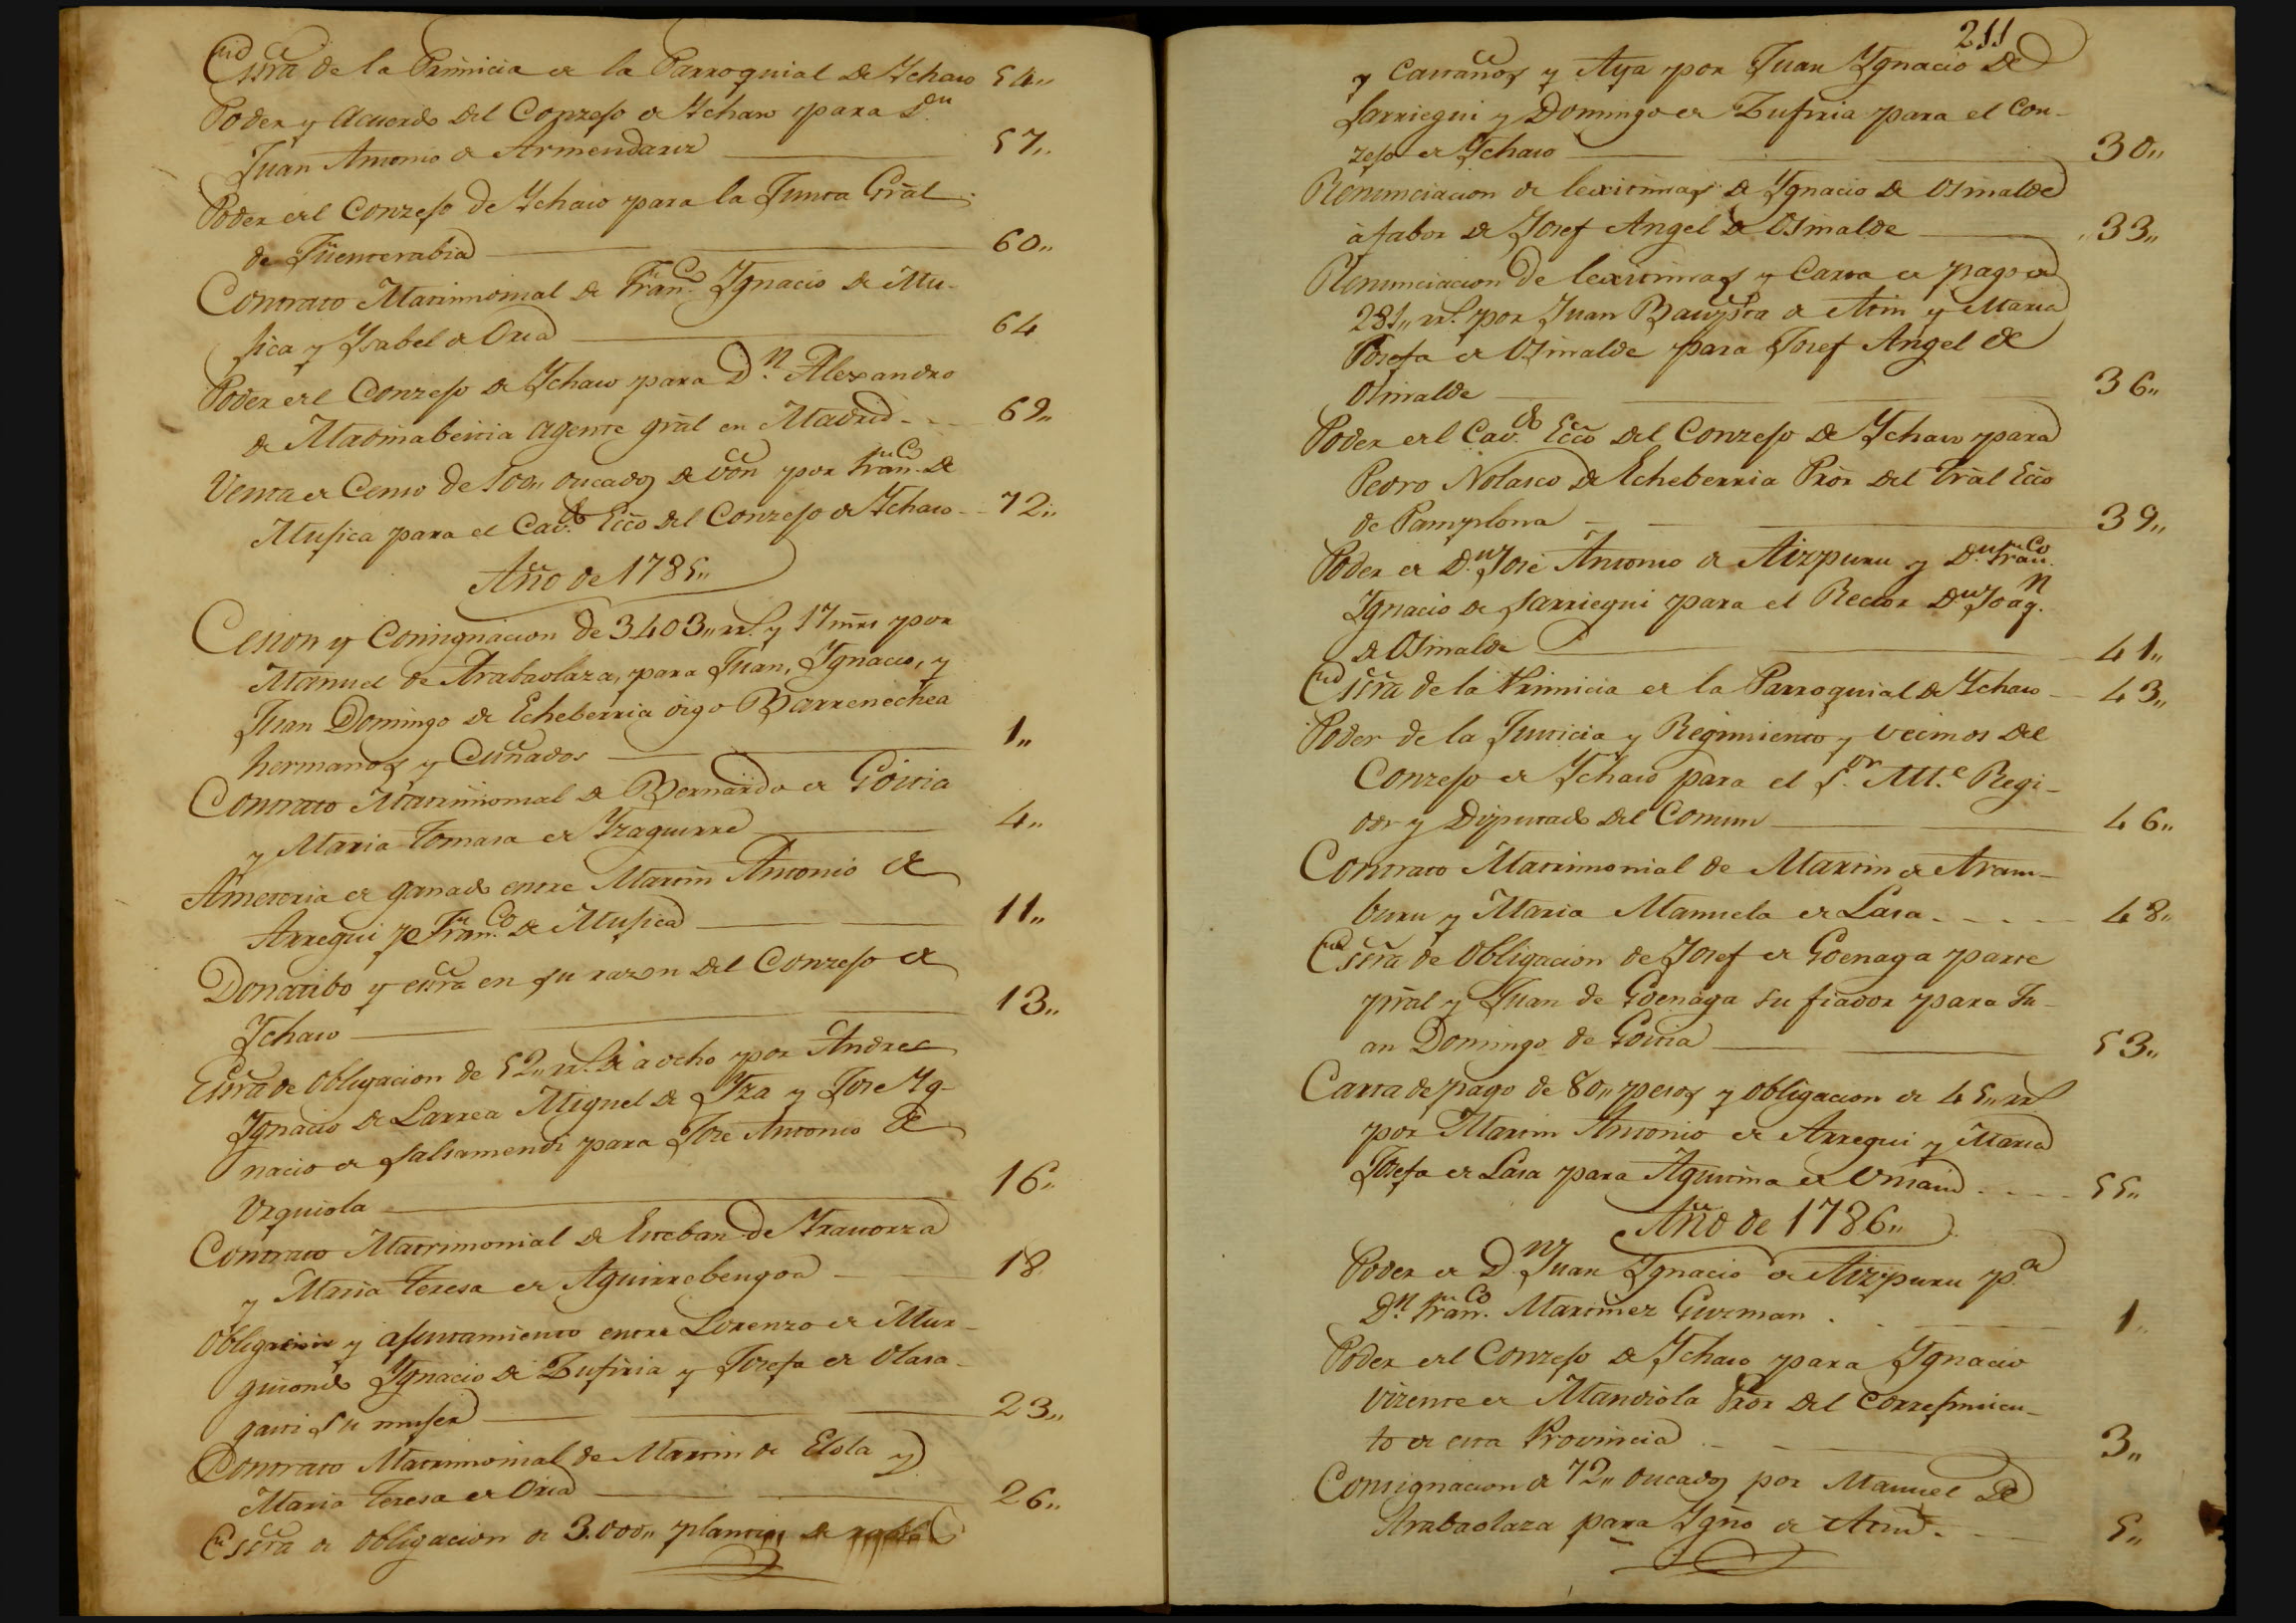 Essra de la Primicia de la Parroquial de Ychaso 54,,
Poder y acuerdo del Conzejo de Ychaso para Dn.
Juan Antonio de Armendariz 57,,
Poder del Conzejo de Ychaso para la Junta Gral
de Fuenterabia 60,,
Contrato Matrimonial de Franco. Ygnacio de Mu-
jica y Ysabel de Oria 64
Poder del Conzejo de Ychaso para Dn. Alexandro
de Madinabeitia agente gral en Madrid 69,,
Venta de Censo de 100,, ducados de von por Franco. de
Mujica para el Cavdo. Ecco del Conzejo de Ychaso 72,,
Año de 1785,,
Cesion y Consignacion de 3403,, rrs. y 17 mrs por
Manuel de Arabaolaza, para Juan, Ygnacio, y
Juan Domingo de Echeberria digo Barrenechea
hermanos y Cuñados 1,,
Contrato Matrimonial de Bernardo de Goitia
y Maria Tomasa de Yzaguirre 4,,
Ameteria de ganado entre Martin Antonio de
Arregui y Franco. de Mujica 11,,
Donatibo y essra en su razon del Conzejo de
Ychaso 13,,
Essra de obligacion de 52,, rrs. de a ocho por Andres
Ygnacio de Larrea Miguel de Yza y Jose Yg-
nacio de Salsamendi para Jose Antonio de
Urquiola 16,,
Contrato Matrimonial de Esteban de Yrastorza
y Maria Teresa de Aguirrebengoa 18
Obligacion y ajustamiento entre Lorenzo de Mur-
guiondo Ygnacio de Zufiria y Josefa de Olasa-
gasti su mujer 23,,
Contrato Matrimonial de Martin de Elola y
Maria Teresa de Oria 26,,
Essra de obligacion de 3.000,, plantios de
211
y Castaños y Aya por Juan Ygnacio de
Sarriegui y Domingo de Zufiria para el Con-
zejo de Ychaso 30,,
Renunciacion de lexitimas de Ygnacio de Osinalde
à fabor de Josef Angel de Osinalde 33,,
Renunciacion de lexitimas y Carta de pago de
281,, rrs. por Juan Bauptista de Atin y Maria
Josefa de Osinalde para Josef Angel de
Osinalde 36,,
Poder del Cavdo. Ecco del Conzejo de Ychaso para
Pedro Nolasco de Echeberria Pror del Tral Ecco
de Pamplona 39,,
Poder de Dn. Jose Antonio de Aizpuru y Dn. Franco.
Ygnacio de Sarriegui para el Rector Dn. Joaqn.
de Osinalde 41,,
Essra de la Primicia de la Parroquial de Ychaso 43,,
Poder de la Justicia y Regimiento y vecinos del
Conzejo de Ychaso para el Sor. Alle. Regi-
dor y Diputado del Comun 46,,
Contrato Matrimonial de Martin de Aram-
buru y Maria Manuela de Lasa 48,,
Essra de Obligacion de Josef de Goenaga parte
pral y Juan de Goenaga su fiador para Ju-
an Domingo de Goitia 53,,
Carta de pago de 80,, pesos y obligacion de 45,, rrs
por Martin Antonio de Arregui y Maria
Josefa de Lasa para Agustina de 55,,
Año de 1786,,
Poder de Dn. Juan Ygnacio de Aizpuru pa.
Dn. Franco. Martinez Guzman 1,,
Poder del Conzejo de Ychaso para Ygnacio
Vizente de Mandiola Pror del Correjimien-
to de esta Provincia 3,,
Consignacion de 72,, ducados por Manuel de
Arabaolaza para Ygno de Atin 5,,